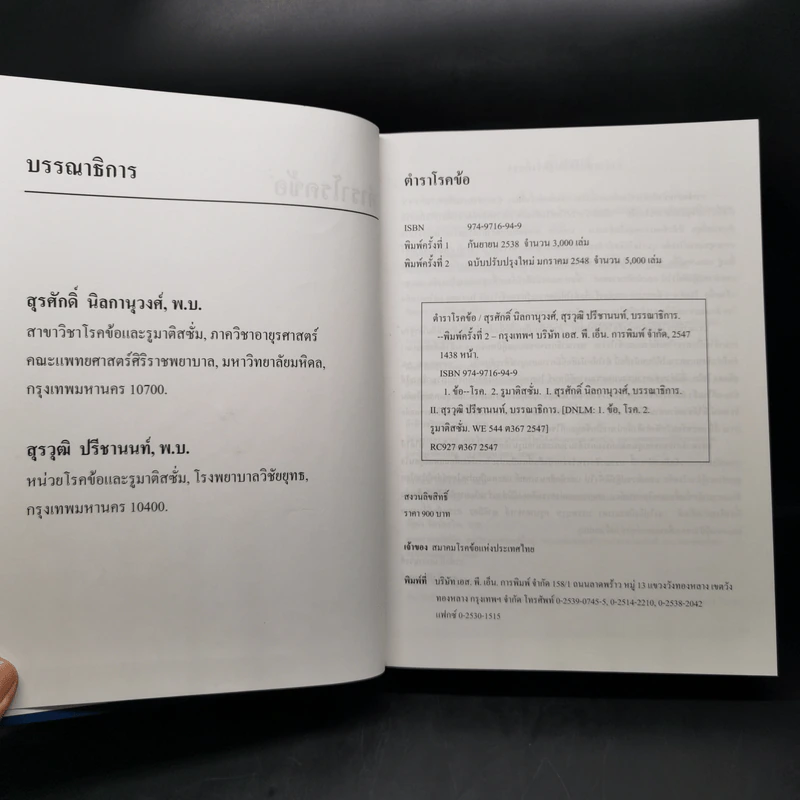 บรรณาธิการ
สุรศักดิ์ นิลกานุวงศ์, พ.บ.
สาขาวิชาโรคข้อและรูมาติสซั่ม, ภาควิชาอายุรศาสตร์
คณะแพทยศาสตร์ศิริราชพยาบาล, มหาวิทยาลัยมหิดล,
กรุงเทพมหานคร 10700.
สุรวุฒิ ปรีชานนท์, พ.บ.
หน่วยโรคข้อและรูมาติสซั่ม, โรงพยาบาลวิชัยยุทธ,
กรุงเทพมหานคร 10400.
ตำราโรคข้อ
ISBN 974-9716-94-9
พิมพ์ครั้งที่ 1 กันยายน 2538 จำนวน 3,000 เล่ม
พิมพ์ครั้งที่ 2 ฉบับปรับปรุงใหม่ มกราคม 2548 จำนวน 5,000 เล่ม
ตำราโรคข้อ / สุรศักดิ์ นิลกานุวงศ์, สุรวุฒิ ปรีชานนท์, บรรณาธิการ.
--พิมพ์ครั้งที่ 2 – กรุงเทพฯ บริษัท เอส. พี. เอ็น. การพิมพ์ จำกัด, 2547
1438 หน้า.
ISBN 974-9716-94-9
1. ข้อ--โรค. 2. รูมาติสซั่ม. I. สุรศักดิ์ นิลกานุวงศ์, บรรณาธิการ.
II. สุรวุฒิ ปรีชานนท์, บรรณาธิการ. [DNLM: 1. ข้อ, โรค. 2.
รูมาติสซั่ม. WE 544 ต367 2547]
RC927 ต367 2547
สงวนลิขสิทธิ์
ราคา 900 บาท
เจ้าของ สมาคมโรคข้อแห่งประเทศไทย
พิมพ์ที่ บริษัท เอส. พี. เอ็น. การพิมพ์ จำกัด 158/1 ถนนลาดพร้าว หมู่ 13 แขวงวังทองหลาง เขตวัง
ทองหลาง กรุงเทพฯ จำกัด โทรศัพท์ 0-2539-0745-5, 0-2514-2210, 0-2538-2042
แฟกซ์ 0-2530-1515